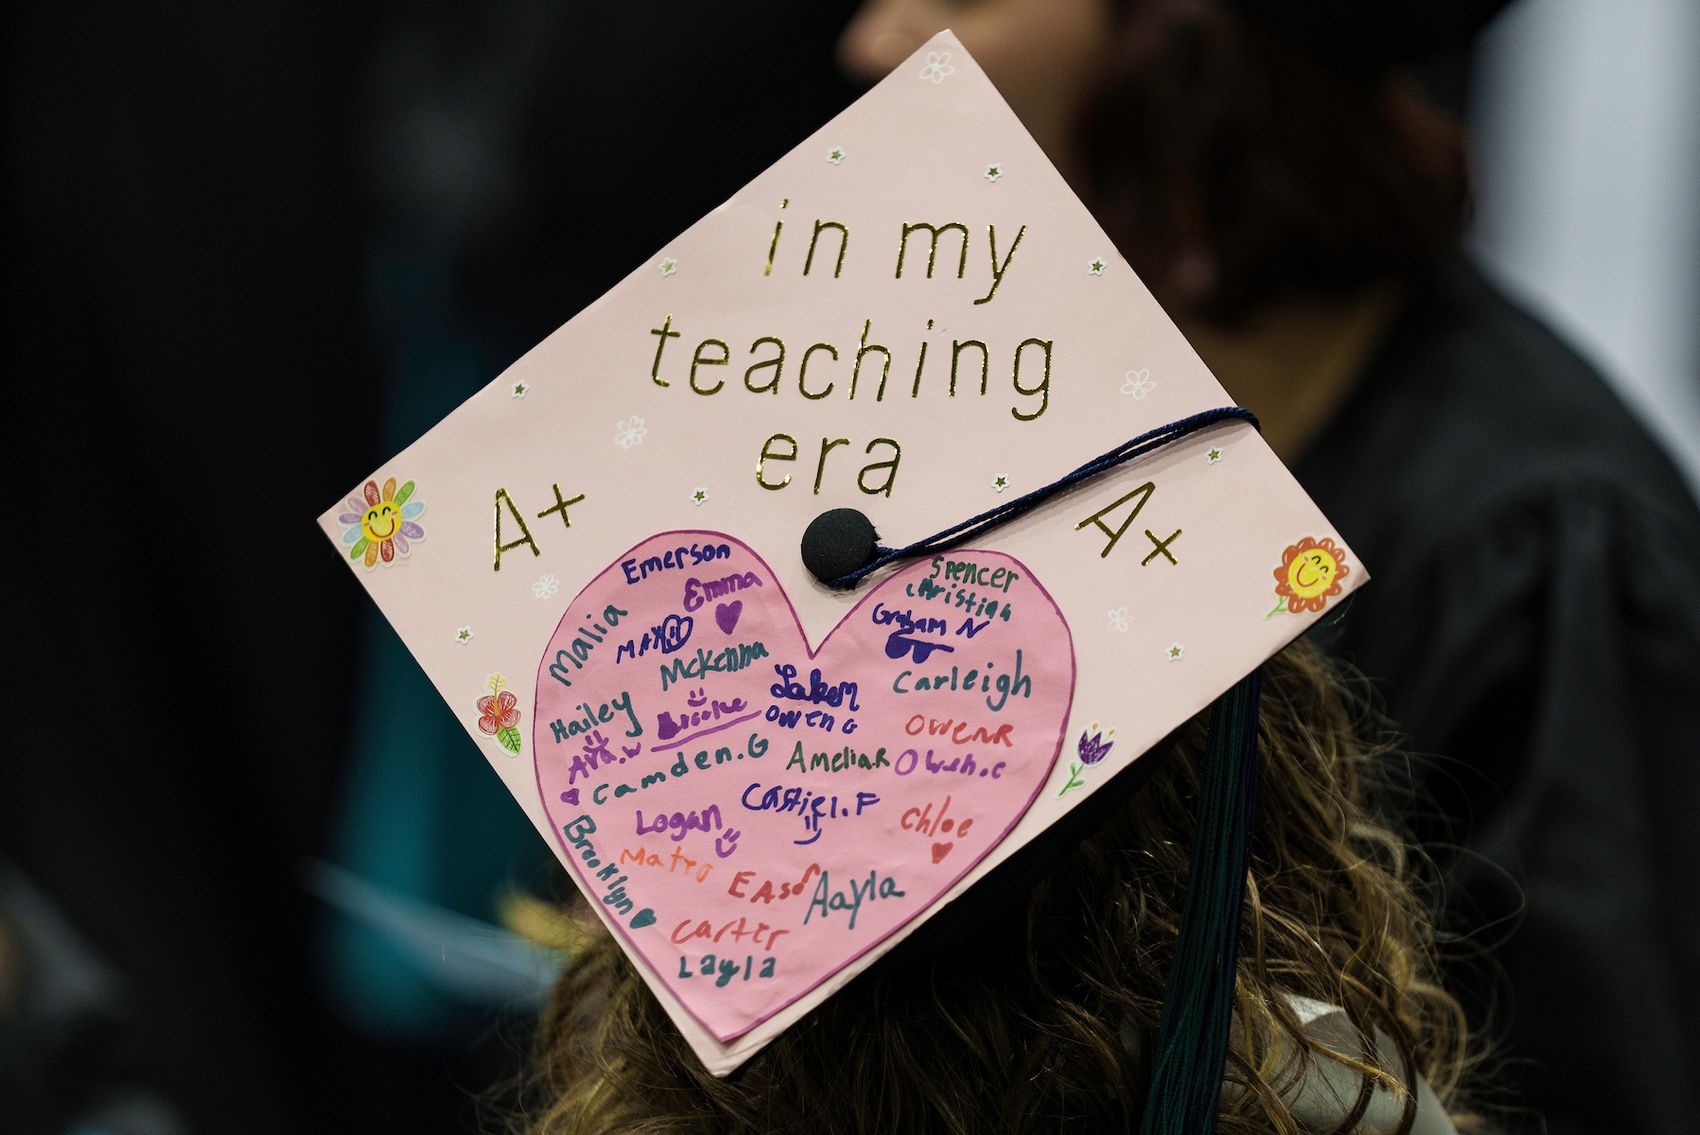 in my
teaching
era
A+
A+
Emerson
Emma
Malia
MAX
McKenna
Hailey
Brooke
Ava.W
Camden.G
Logan
Brooklyn
Mateo
EASon
Carter
Layla
Aayla
Castiel.F
AmeliaR
Owen G
Spencer
christina
Graham N
Carleigh
OwenR
Owen.c
Chloe